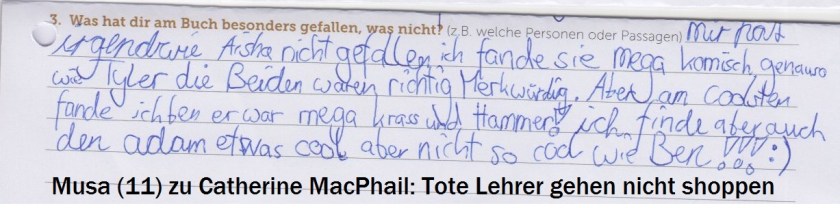 3. Was hat dir am Buch besonders gefallen, was nicht? (z.B. welche Personen oder Passagen) Mir hat
irgendwie Aisha nicht gefallen ich fande sie mega komisch, genauso
wie Tyler die Beiden waren richtig Merkwürdig. Aber am coolsten
fande ich ben er war mega krass und Hammer!! ich finde aber auch
den adam etwas cool aber nicht so cool wie Ben!!! :)
Musa (11) zu Catherine MacPhail: Tote Lehrer gehen nicht shoppen